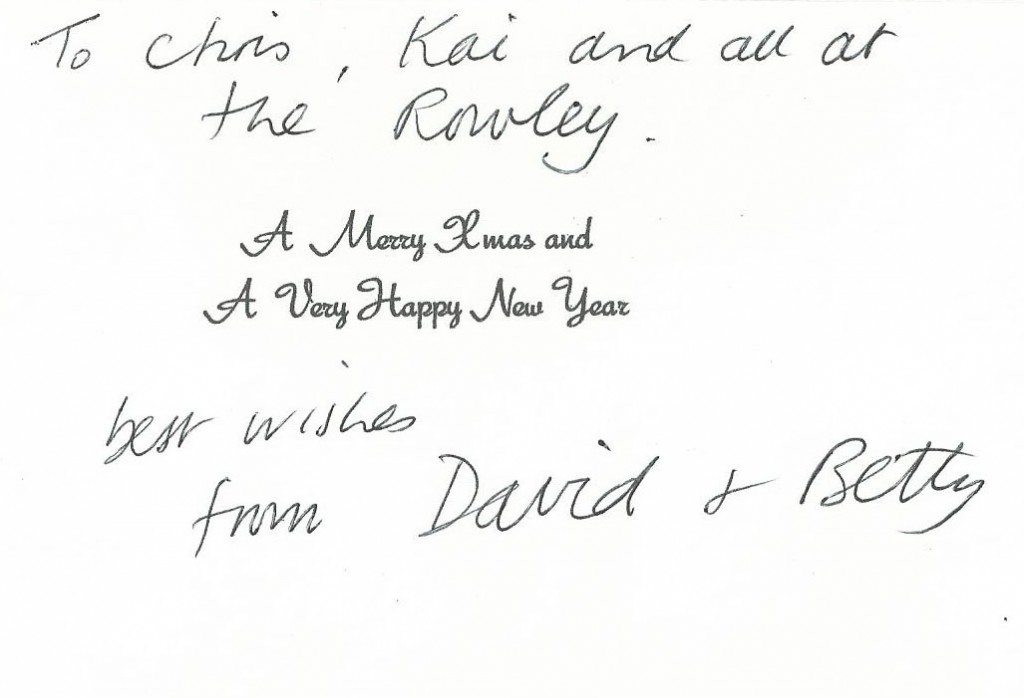 To Chris, Kai and all at
the Rowley.
A Merry Xmas and
A Very Happy New Year
best wishes
from David & Betty